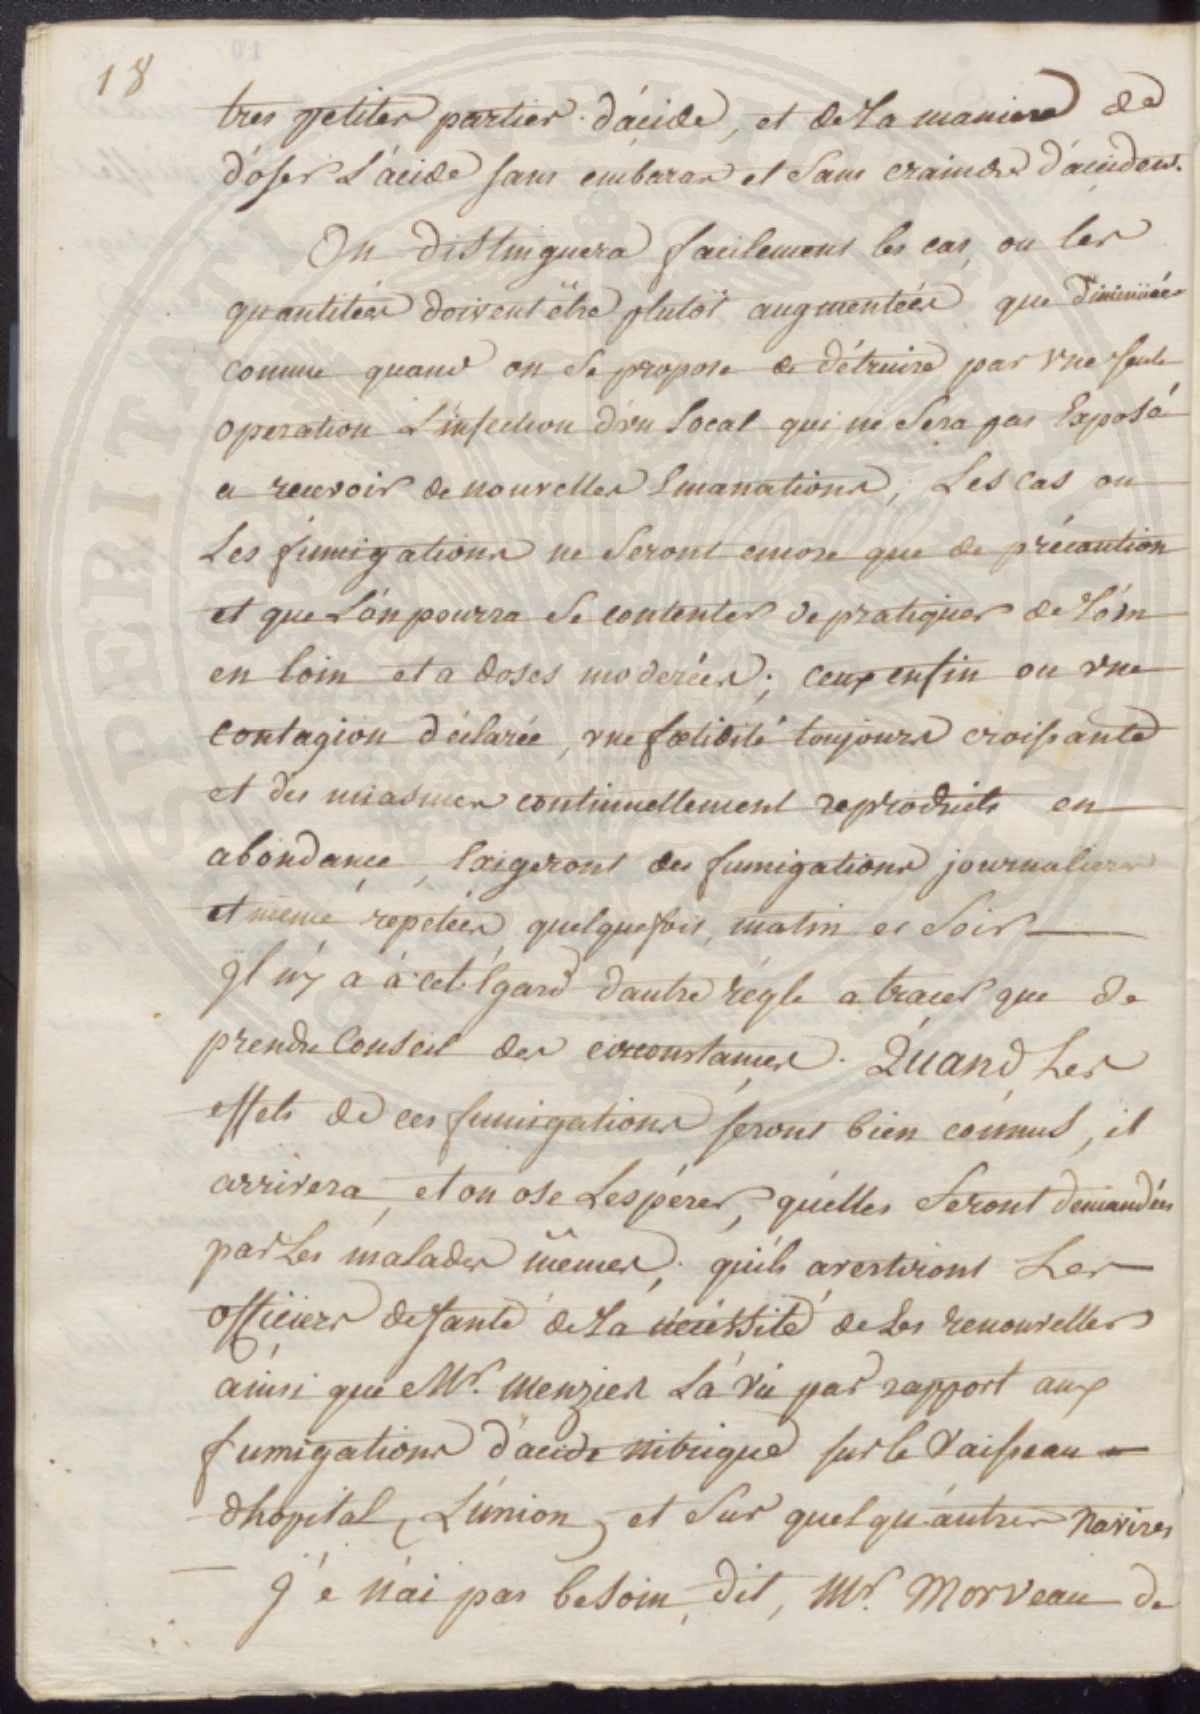 18
tres petites parties d'acide, et de La maniere de
d'oser L'acide sans embaras et sans craindre d'accidens.
On distinguera facilement les cas, ou les
quantitées doivent être plutôt augmentées que diminuées
comme quand on se propose de détruire par une seule
operation L'infection d'un Local qui ne sera pas Exposé
a recevoir de nouvelles Emanations; Les cas ou
Les fumigations ne seront encore que de précaution
et que L'on pourra se contenter de pratiquer de Loin
en loin et a doses moderées; ceux enfin ou une
contagion déclarée, une fœtidité toujours croissante
et des miasmes continuellement reproduits en
abondance, Exigeront des fumigations journalieres
et même repetées quelquefois, matin et soir
Il n'y a à cet Egard d'autre règle a tracer que de
prendre Conseil des circonstances. Quand Les
effets de ces fumigations seront bien connus, il
arrivera, et on ose L'espérer, qu'elles seront demandées
par Les malades mêmes, qu'ils avertiront Les
officiers de santé de La nécessité de Les renouveller
ainsi que Mr. Menzies L'a vu par rapport aux
fumigations d'acide nitrique sur le Vaisseau
d'hopital, L'union, et sur quelqu'autres Navires
J'e n'ai pas besoin, dit, Mr. Morveau de
SPERITATI PUBLICAE